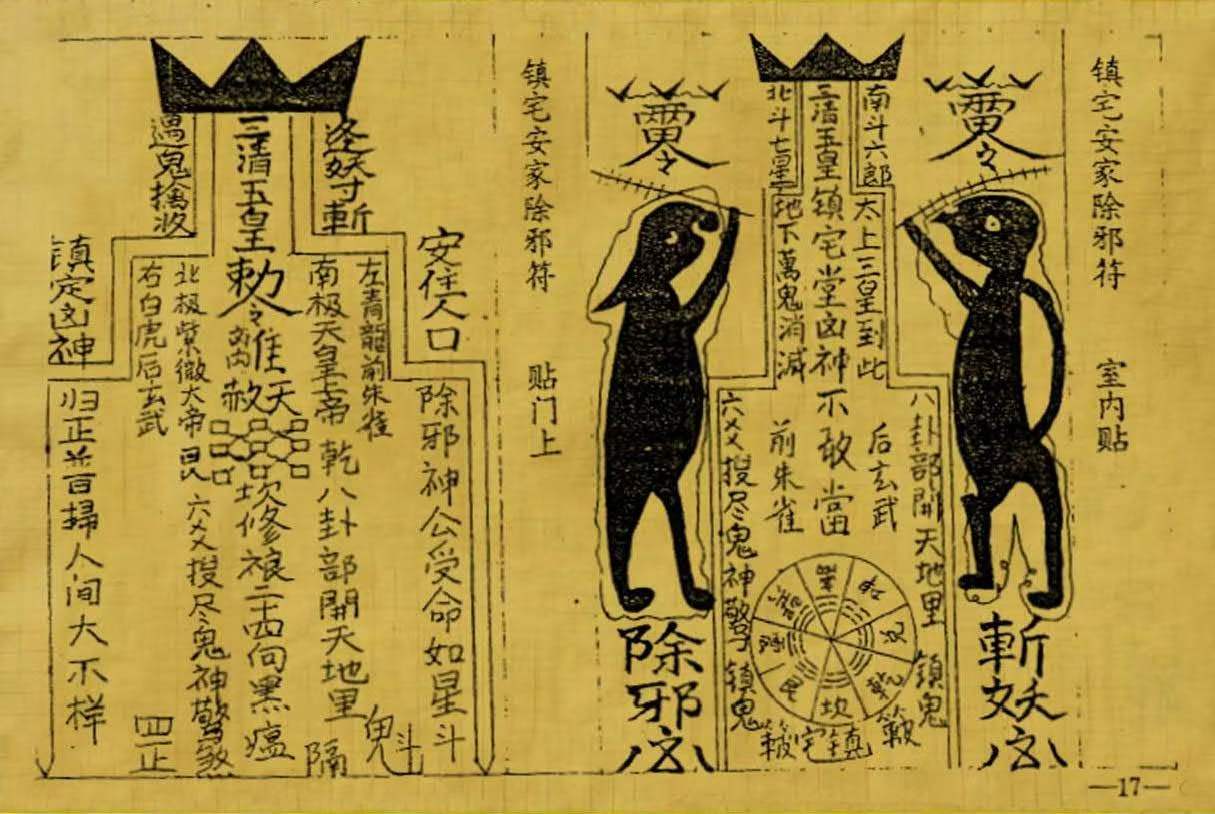 镇宅安家除邪符 室内贴
雷令
斬妖
南斗六郎
太上三皇到此
后玄武
八卦部開天地里 镇鬼
三清玉皇鎮宅堂凶神不敢當
北斗七星
地下萬鬼消滅
前朱雀
六爻搜尽鬼神驚 镇鬼
乾
坎
艮
宅鎮
雷令
除邪
镇宅安家除邪符 贴门上
逢妖寸斬
安住人口
除邪神公受命如星斗
左青龍前朱雀
南极天皇上帝 乾八卦部開天地里
三清玉皇勅令
准天
赦
坎修裉二十四向黑瘟
北极紫微大帝 艮 六爻搜尽鬼神驚煞
右白虎后玄武
遇鬼擒收
镇定凶神
归正並百掃人间大不样
四正
隔
鬼
斗
—17—